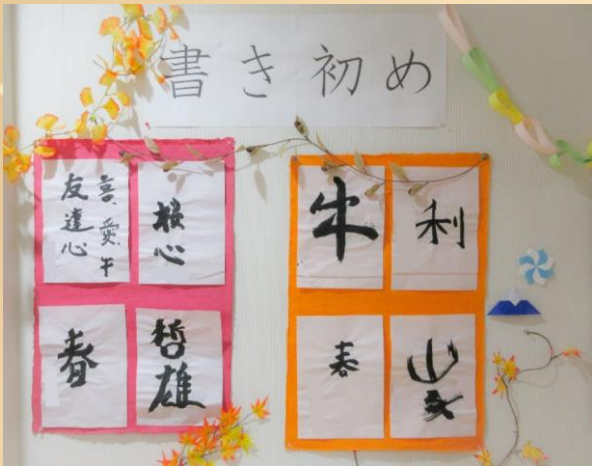 書き初め
喜、愛、午
友達心
核心
春
哲雄
牛
利
春